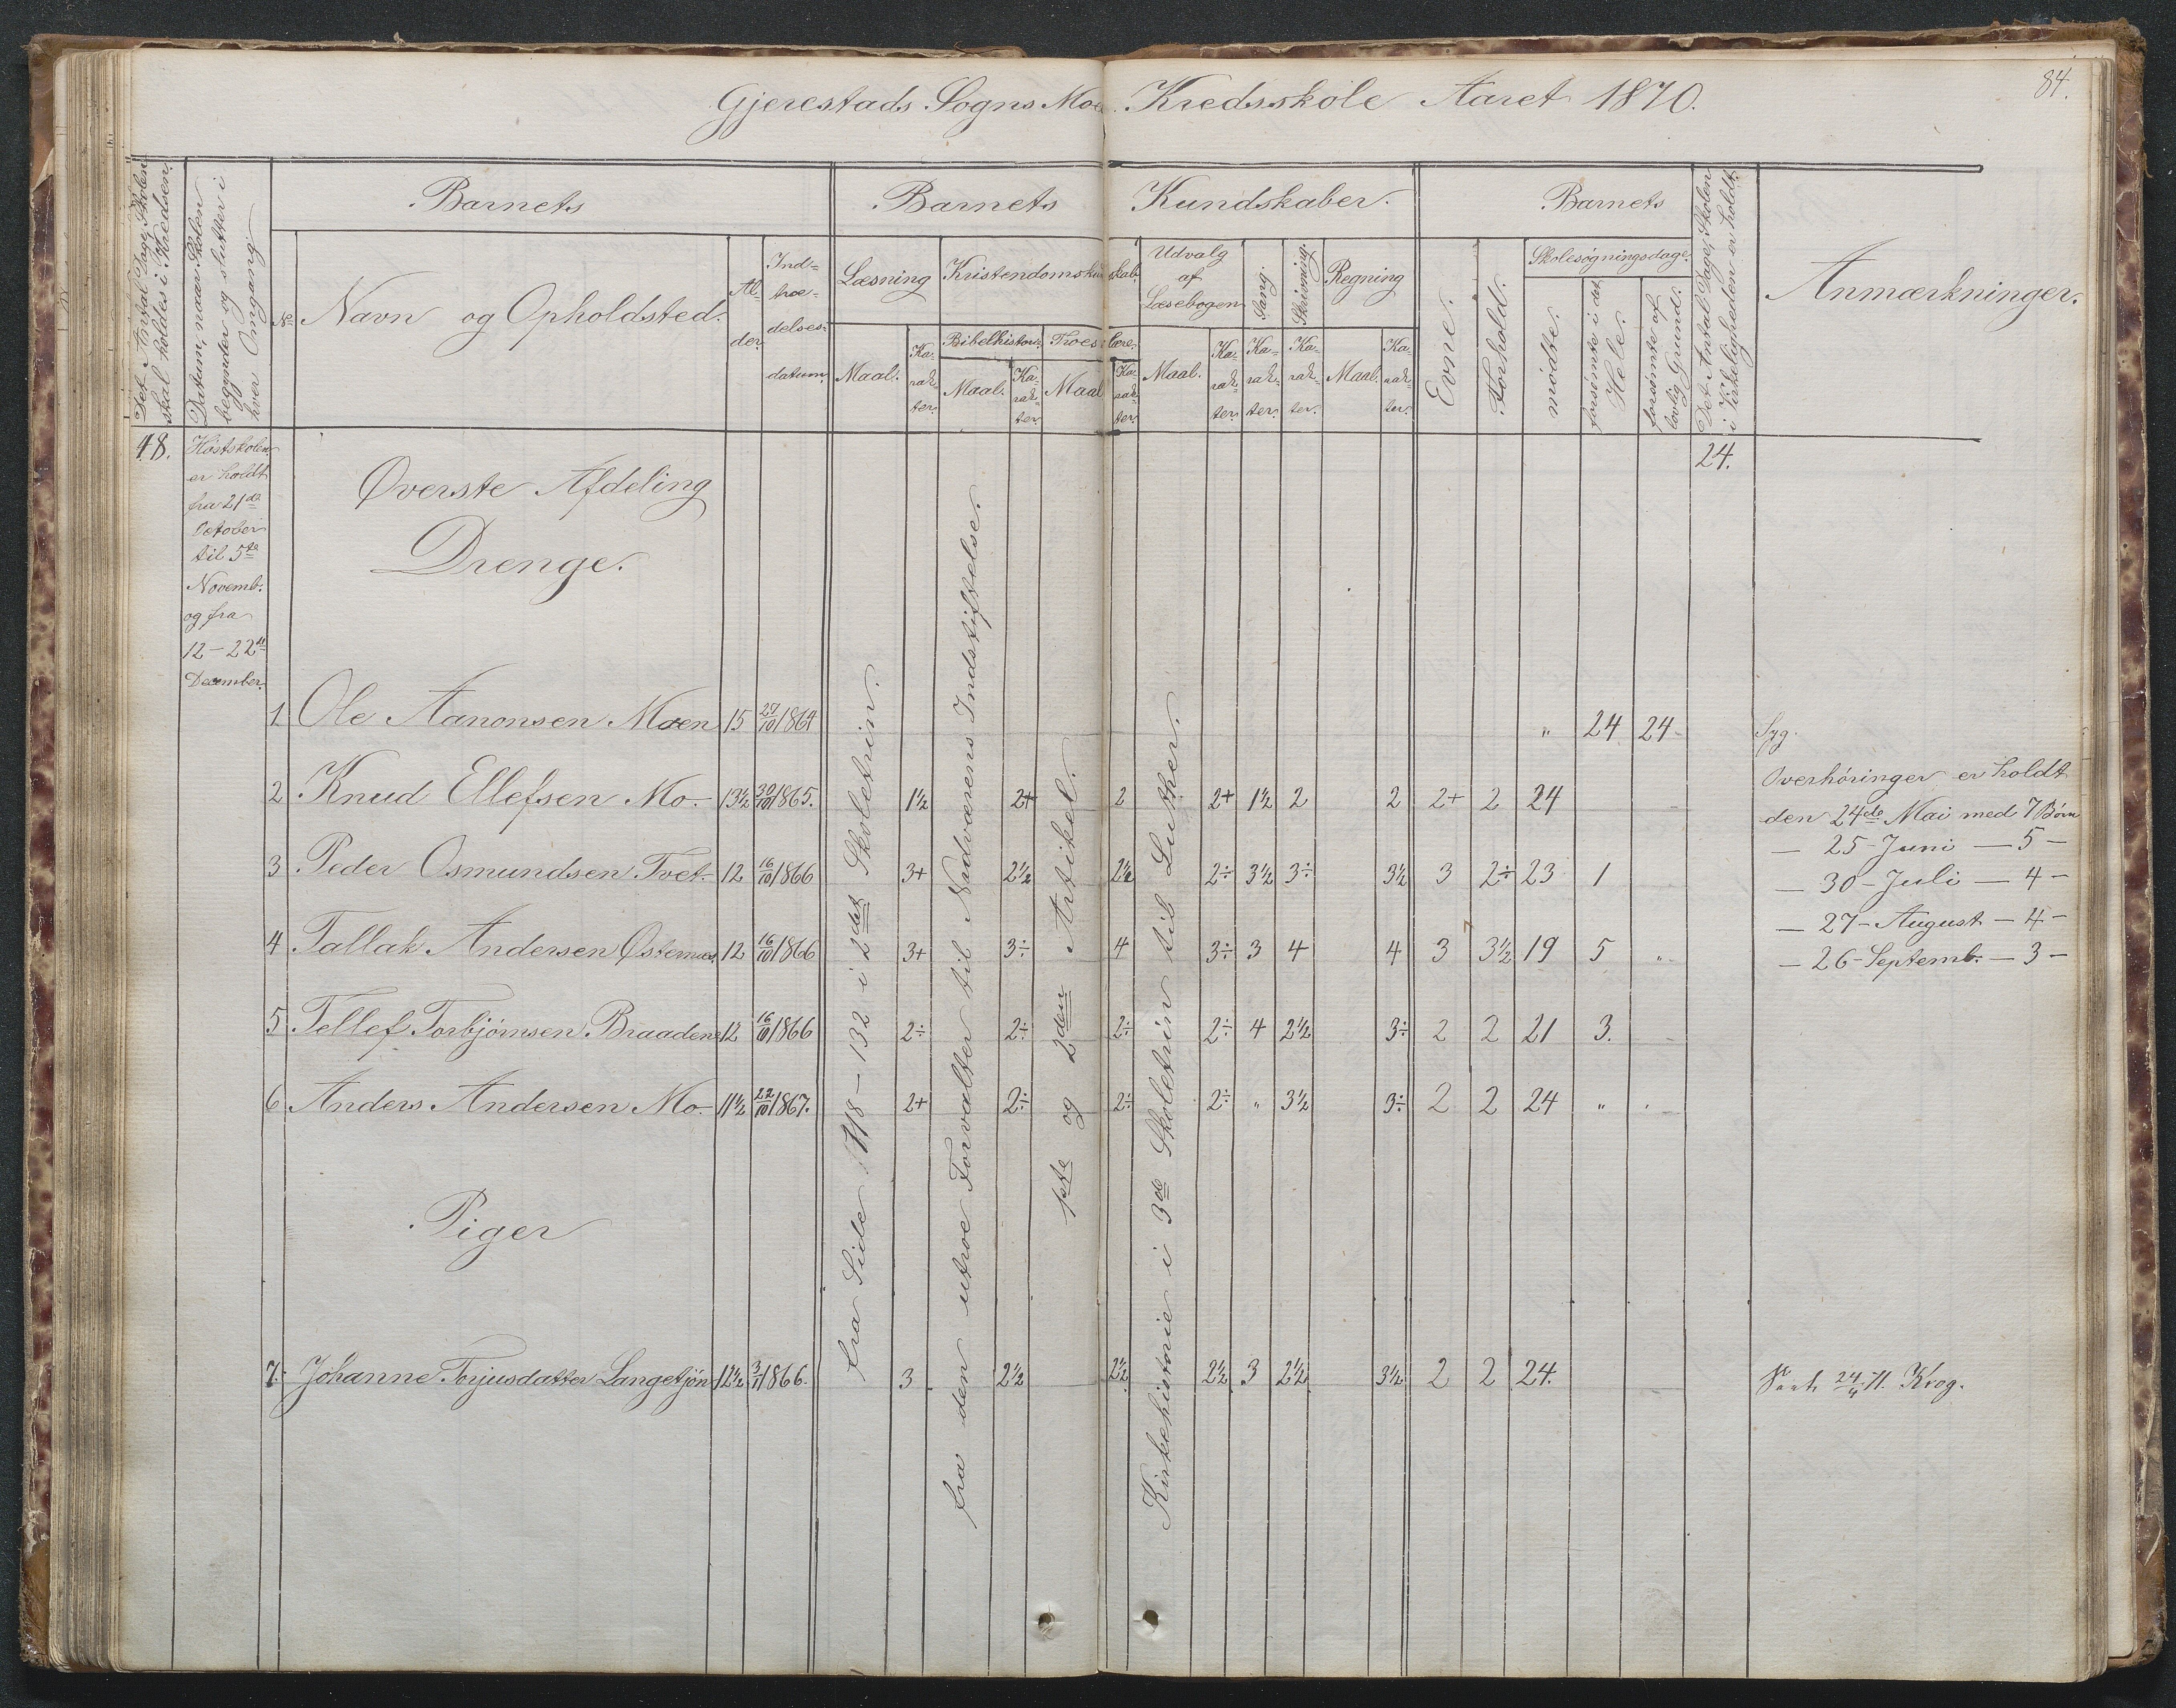 84.
Gjerestads Sogns Moe Kredsskole Aaret 1870.
Det Antal Dage, Skolen skal holdes i Kredsen.
Datum, naar Skolen begynder og slutter i hver Omgang.
Barnets
Barnets Kundskaber.
Barnets
Det Antal Dage, Skolen i Virkeligheden er holdt.
Anmærkninger.
No
Navn og Opholdsted.
Alder.
Indtrædelsesdatum.
Læsning
Kristendomskundskab.
Udvalg af Læsebogen
Sang.
Skrivning.
Regning
Evne.
Forhold.
Skolesøgningsdage.
mødte.
forsømte i det Hele.
forsømte af lovlig Grund.
Bibelhistorie.
Troeslære.
Maal.
Karakter.
Maal.
Karakter.
Maal
Karakter.
Maal.
Karakter.
Karakter.
Karakter.
Maal.
Karakter.
48.
Høstskolen
er holdt
fra 21de
October
til 5te
Novemb.
og fra
12-22de
December.
24.
Øverste Afdeling
Drenge.
fra Side 118-132 i 2det Skoletrin.
fra den utroe Forvalter til Nadverens Indstiftelse.
1ste og 2den Artikel.
Kirkehistorie i 3de Skoletrin til Luther.
1 Ole Aanonsen Moen 15 27/10 1864 " 24 24 Syg.
2 Knud Ellefsen Mo. 13½ 30/10 1865. 1½ 2+ 2 2+ 1½ 2 2 2+ 2 24
3 Peder Osmundsen Tvet. 12 16/10 1866 3+ 2½ 2½ 2÷ 3½ 3÷ 3½ 3 2÷ 23 1
4 Tallak Andersen Østernæs. 12 16/10 1866 3+ 3÷ 4 3÷ 3 4 4 3 3½ 19 5 "
5 Tellef Torbjørnsen Braadene 12 16/10 1866 2÷ 2÷ 2÷ 2÷ 4 2½ 3÷ 2 2 21 3.
6 Anders Andersen Mo. 11½ 22/10 1867. 2+ 2÷ 2÷ 2÷ " 3½ 3÷ 2 2 24 "
Overhøringer er holdt
den 24de Mai med 7 Børn
— 25 - Juni — 5 -
— 30 - Juli — 4 -
— 27 - August - 4 -
— 26 - Septemb. - 3 -
Piger
7. Johanne Torjusdatter Langetjøn 12½ 3/11 1866. 3 2½ 2½ 2½ 3 2½ 3½ 2 2 24.
24/4 71. Krog.